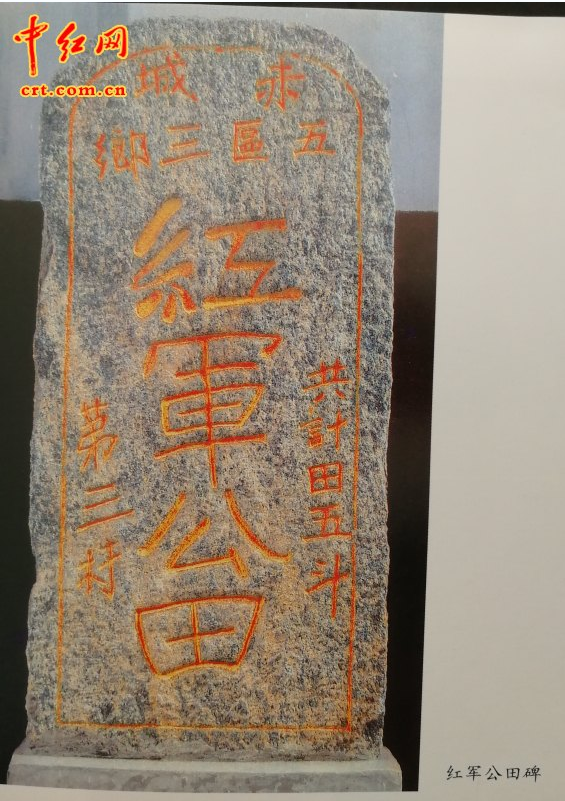 中红网
crt.com.cn
赤城
五區三鄉
共計田五斗
紅軍公田
第三村
红军公田碑